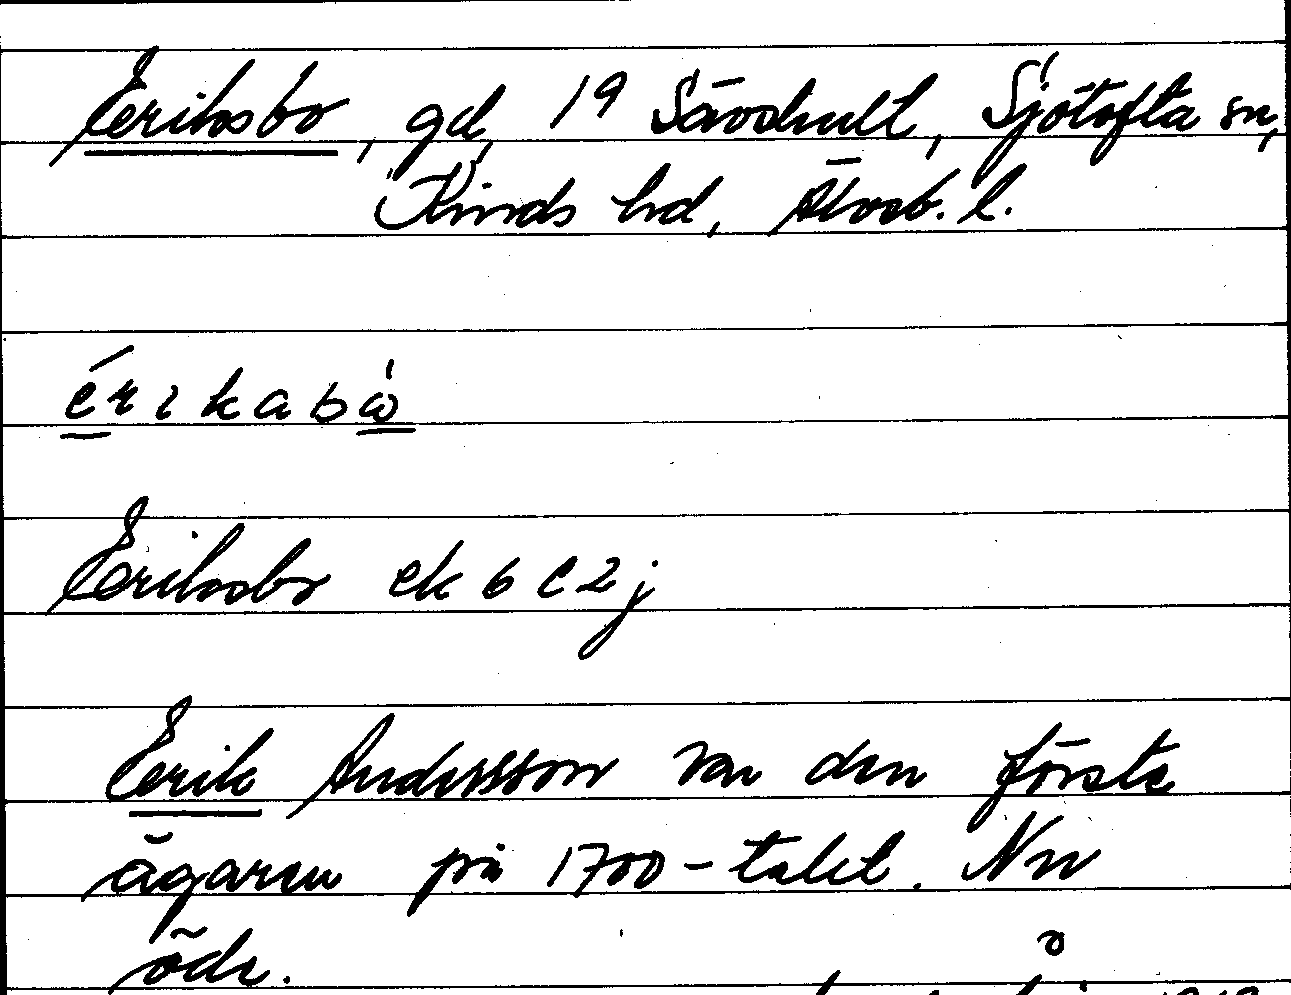 Eriksbo, gd, 19 Sävshult, Sjötofta sn,
Kinds hd, Älvsb. l.
érikabò
Eriksbo ek 6 C 2 j
Erik Andersson var den första
ägaren på 1700-talet. Nu
öde.